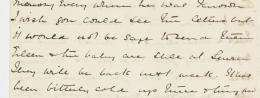 memory every where he was known
I wish you could see the letters but
it would not be safe to send them
Eileen & the baby are still at
They will be back next week. It has
been bitterly cold up there & they have